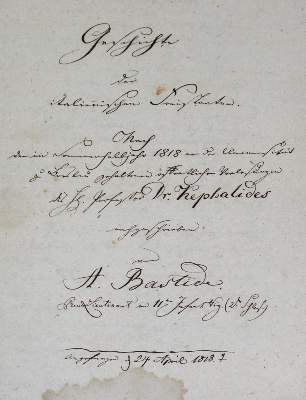 Geschichte
der
italienischen Freistaaten.
Nach
den im Sommerhalbjahr 1818 an der Universität
zu Breslau gehaltenen öffentlichen Vorlesungen
des H. Professor Dr. Kephalides
nachgeschrieben
von
A. Bastide.
Secondlieutenant im 11ten Inftr. Rgt. (2t Schles.)
Angefangen 24 April 1818.